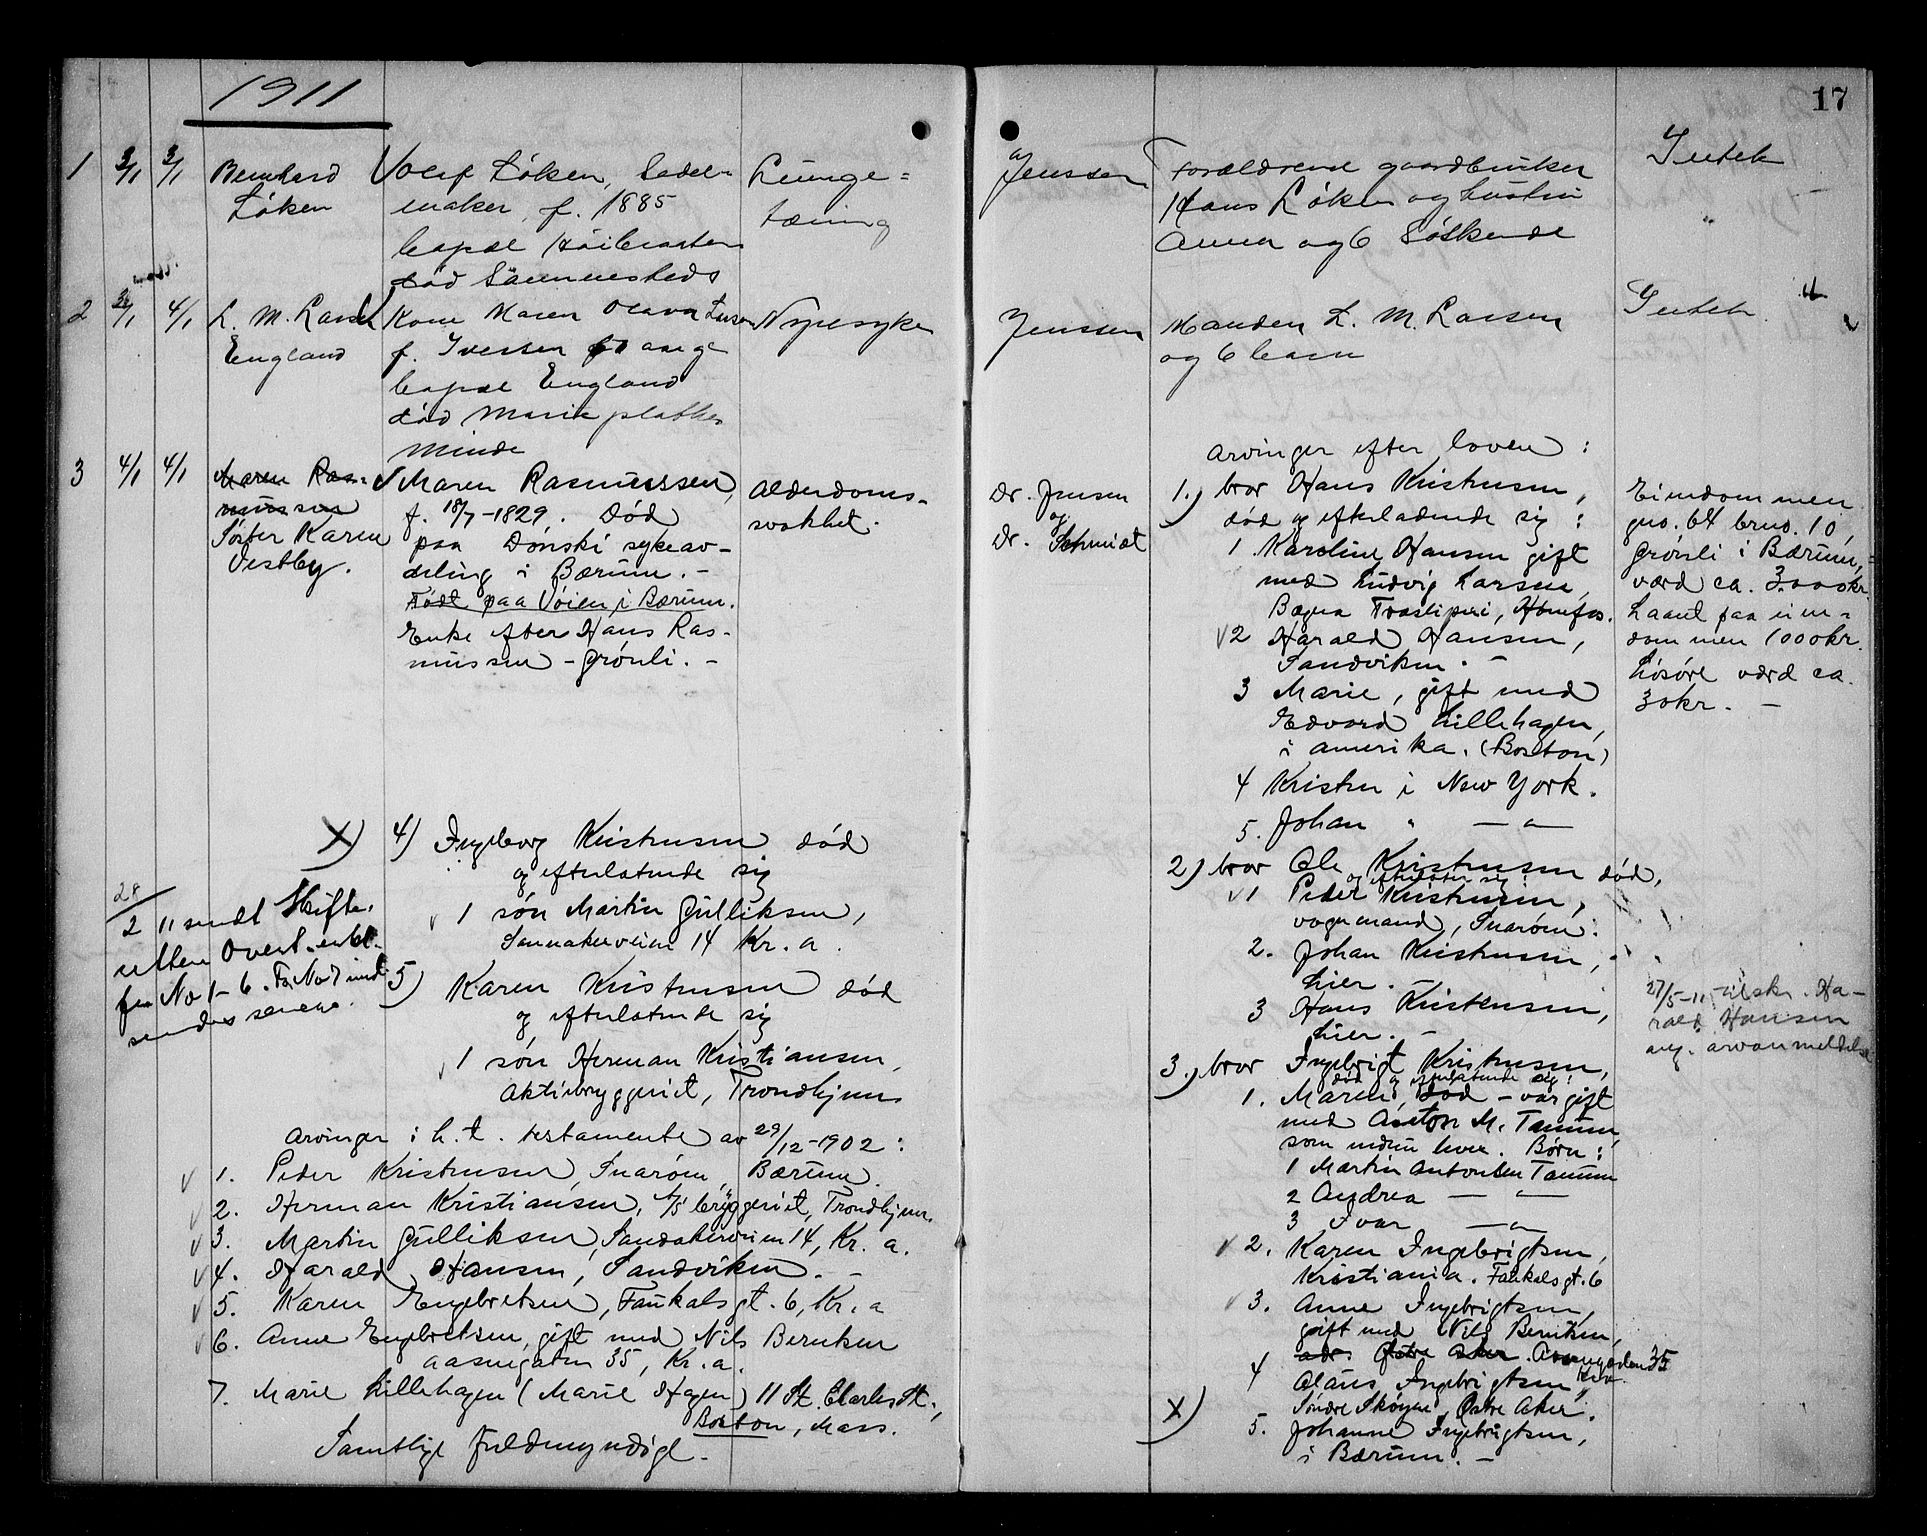 1911
17
1 3/1 3/1 Bernhard
Løken
Olaf Løken, Sadel-
maker, f. 1885
død Sammesteds
Lunge=
tæring
Jenssen
Forældrene gaardbruker
Hans Løken og hustru
Anna og 6 Søskende
Intet
2 4/1 L. M. Larsen
England
Kone Maren Olava Larsen
f. Iversen
England
død Maria plathes
Minde
Nyresyke
Jenssen
Manden L. M. Larsen
og 6 barn
Intet
3 4/1 4/1 Maren Ras-
mussen
Søster Karen
Vestby.
Maren Rasmussen,
f. 18/7-1829. Død
paa Dønski sykeav-
deling i Bærum. -
Født paa Vøien i Bærum.
Enke efter Hans Ras-
mussen - Grønli. -
Alderdoms-
svakhet.
Dr. Jensen
og
Dr. Schmidt
Arvinger efter loven:
1.) bror Hans Kristensen,
død og efterladende sig:
1 Karoline Hansen gift
med Ludvig Larsen,
Bægna Træsliperi, Hønefos.
2 Harald Hansen,
Sandviken. -
3 Marie, gift med
Edvard Lillehagen,
i Amerika. (Boston)
4 Kristen i New York.
5. Johan " — " —
2) bror Ole Kristensen død,
og efterlater sig
1 Peder Kristensen,
vognmand, Snarøen.
2. Johan Kristensen,
hier. -
3 Hans Kristensen,
hier. -
3.) bror Ingebrigt Kristensen,
død og efterlatende sig:
1. Maren, død - var gift
med Anton M. Tanum,
som endnu lever. Børn:
1 Martin Antonsen Tanum
2 Andrea — " —
3 Ivar — " —
2. Karen Ingebrigtsen,
Kristiania. Falkals gt. 6
3. Anne Ingebrigtsen,
gift med Nils Berntsen,
adr. Østre Aker. Aasengaten 35
4 Olaus Ingebrigtsen,
Søndre Skøyen, Østre Aker.
5. Johanne Ingebrigtsen,
i Bærum. -
X)
Eiendommen
gno. 64 brno. 10,
Grønli i Bærum,
værd ca. 3.000 kr.
Laant paa eien-
dommen 1000 kr.
Løsøre værd ca.
30 kr. -
27/5-11 tilskr. Ha-
rald Hansen
ang. arvanmeldelse
X) 4) Ingeborg Kristensen død
og efterlatende sig
1 søn Martin Gulliksen,
Sannakerveien 14 Kr.a.
5) Karen Kristensen død
og efterlatende sig
1 søn Herman Kristiansen,
Aktiebryggeriet, Trondhjem
28/2 11 sendt Skifte-
retten
fra No 1-6. Fra No 7 ind-
sendes senere.
Arvinger i h. t. testamente av 29/12-1902:
1. Peder Kristensen, Snarøen, Bærum.
2. Herman Kristiansen, A/S bryggeriet, Trondhjem.
3. Martin Gulliksen, Sandakerveien 14, Kr.a.
4. Harald Hansen, Sandviken. -
5. Karen Engebretsen, Falkals gt. 6, Kr.a
6. Anne Engebretsen, gift med Nils Berntsen
Aasengaten 35, Kr.a.
7. Marie Lillehagen (Marie Hagen) 11 St. Charles St.,
Boston, Mass.
Samtlige fuldmyndige.